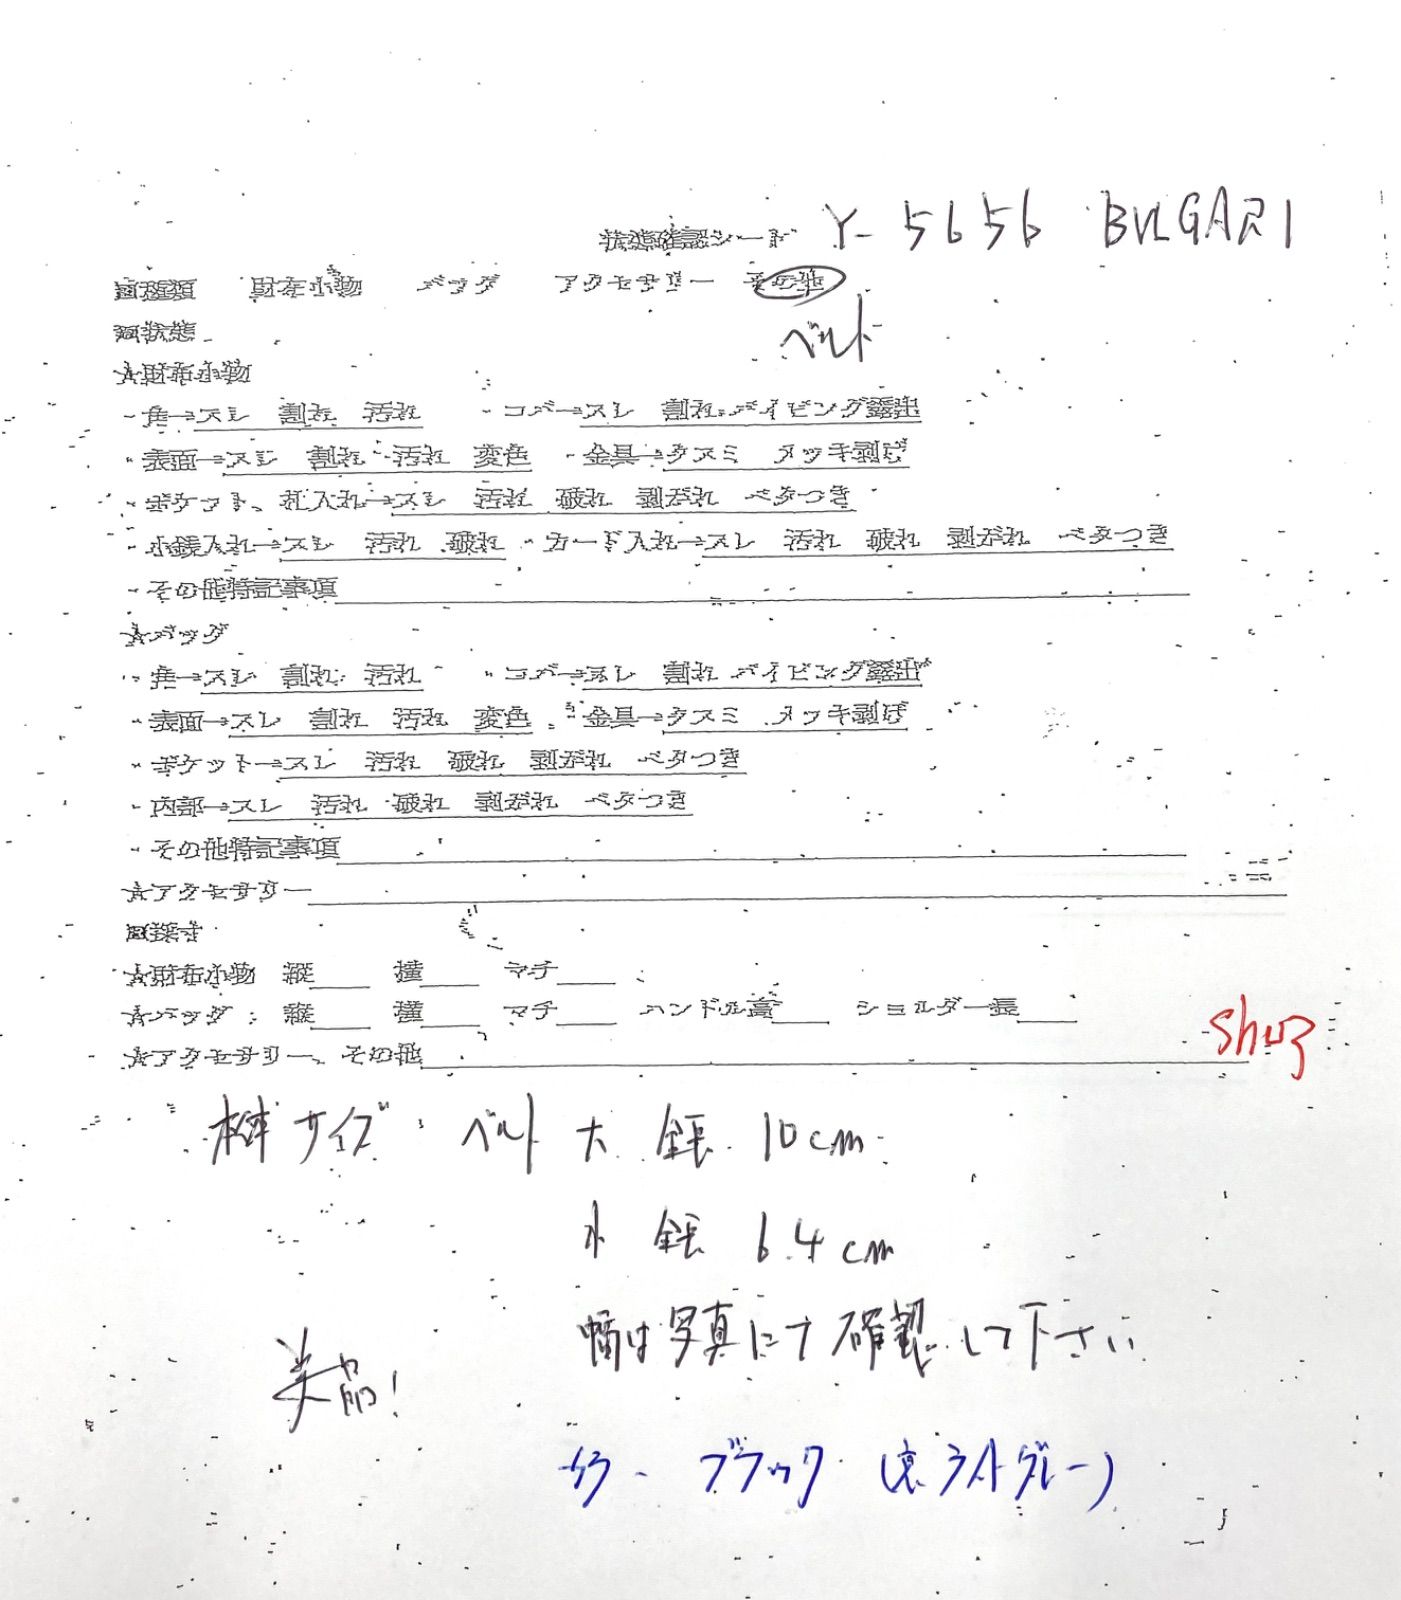 状態確認シート Y-5656 BVLGARI
□種類 財布小物 バッグ アクセサリー その他
ベルト
□状態
☆財布小物
・角→スレ 割れ 汚れ ・コバ→スレ 割れ パイピング露出
・表面→スレ 割れ 汚れ 変色 ・金具→クスミ メッキ剥げ
・ポケット、札入れ→スレ 汚れ 破れ 剥がれ ベタつき
・小銭入れ→スレ 汚れ 破れ ・カード入れ→スレ 汚れ 破れ 剥がれ ベタつき
・その他特記事項
☆バッグ
・角→スレ 割れ 汚れ ・コバ→スレ 割れ パイピング露出
・表面→スレ 割れ 汚れ 変色 ・金具→クスミ メッキ剥げ
・ポケット→スレ 汚れ 破れ 剥がれ ベタつき
・内部→スレ 汚れ 破れ 剥がれ ベタつき
・その他特記事項
☆アクセサリー
□採寸
☆財布小物 縦 横 マチ
☆バッグ 縦 横 マチ ハンドル高 ショルダー長
☆アクセサリー、その他
サイズ ベルト 大 全長 10cm
小 全長 6.4cm
幅は写真にて確認して下さい
美品!
カラー ブラック (裏 ライトグレー)